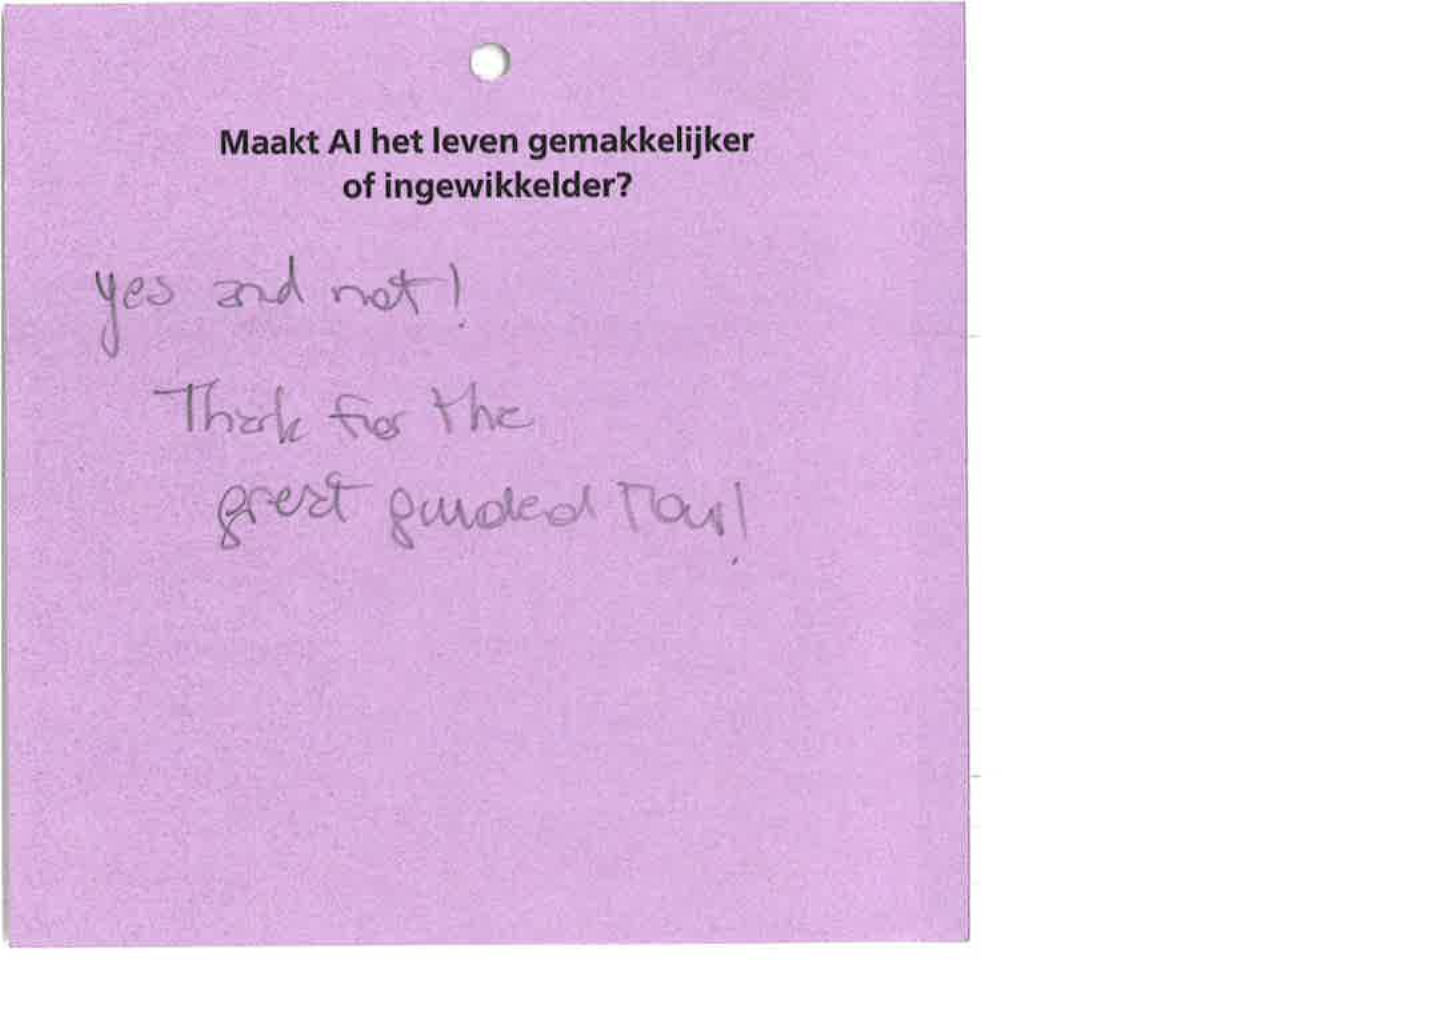 Maakt AI het leven gemakkelijker
of ingewikkelder?
yes and not!
Thank for the
great guided Tour!